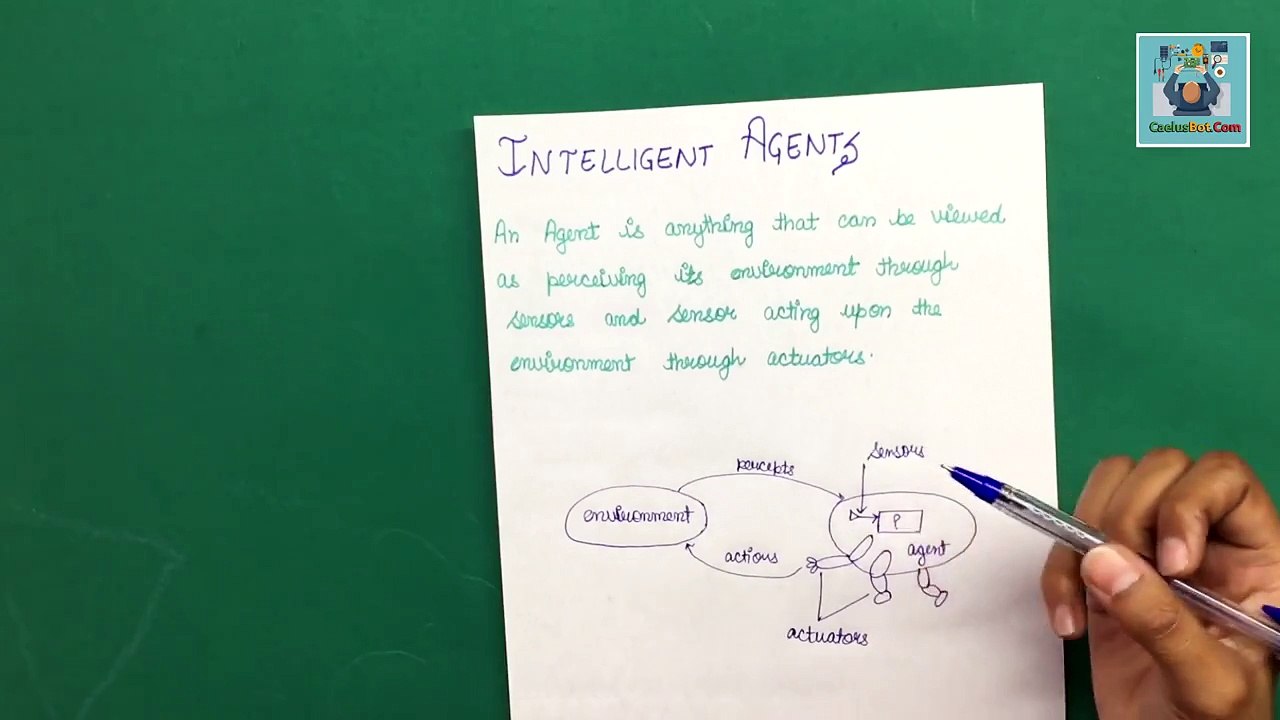 INTELLIGENT AGENTS
An Agent is anything that can be viewed
as perceiving its environment through
sensors and sensor acting upon the
environment through actuators.
sensors
percepts
environment
P
agent
actions
actuators
CaelusBot.Com